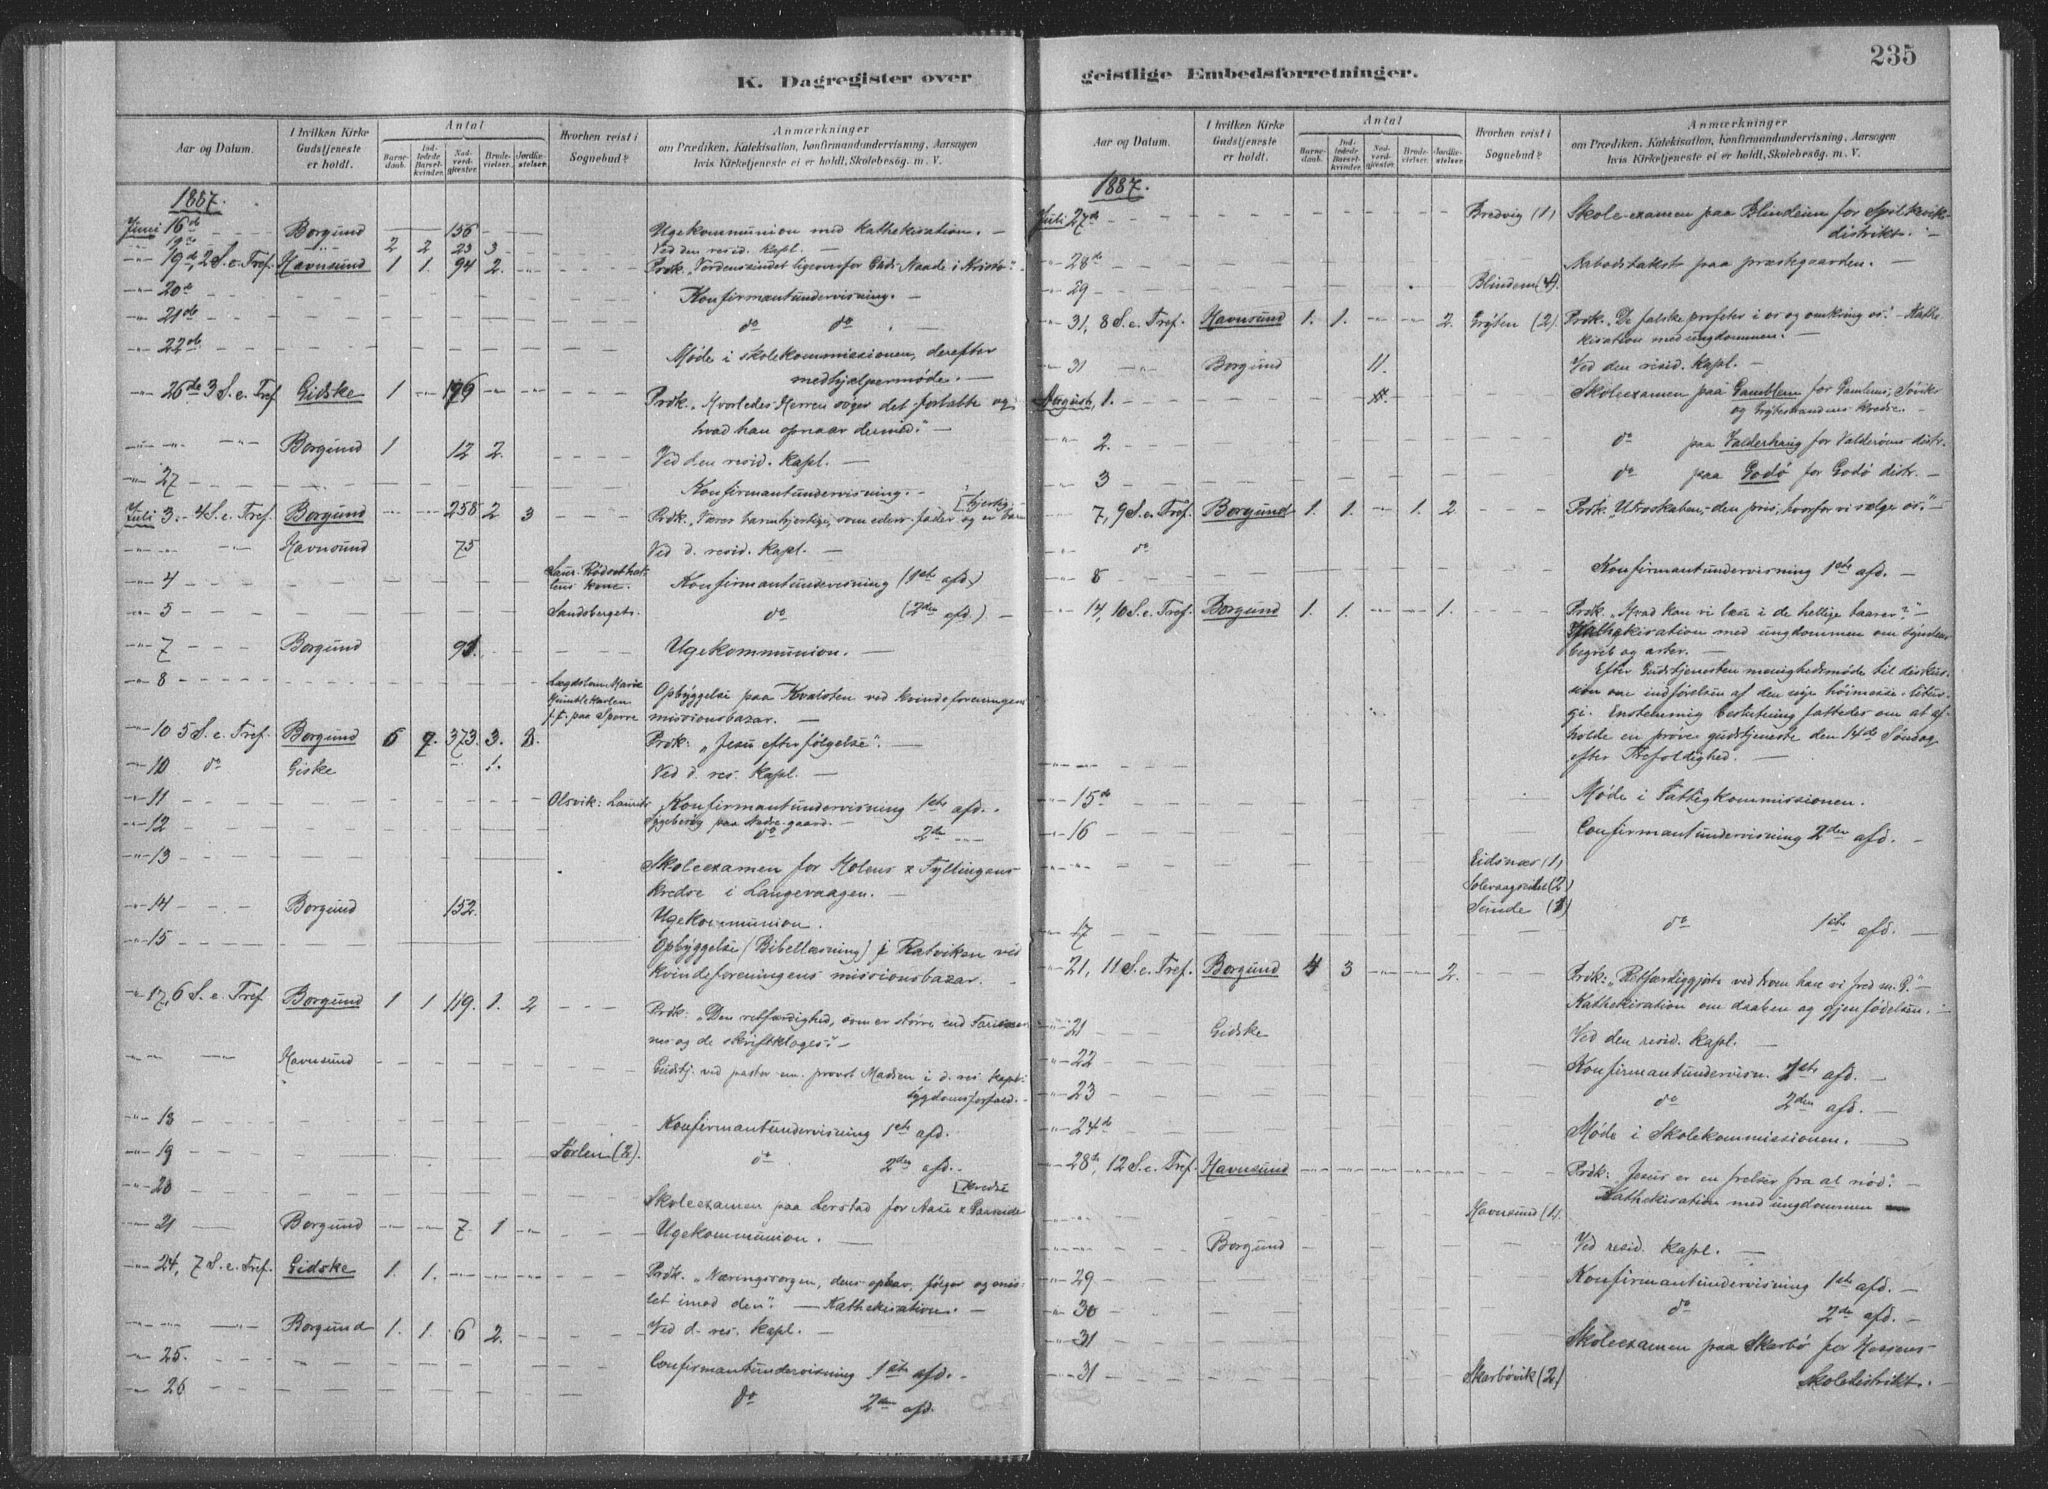 235
K. Dagregister over
geistlige Embedsforretninger.
Aar og Datum.
I hvilken Kirke Gudstjeneste er holdt.
Antal
Barnedaab.
Indledede Barselkvinder.
Nadverdgjester.
Brudevielser.
Jordfæstelser.
Hvorhen reist i Sognebud?
Anmærkninger
om Prædiken, Katekisation, Konfirmandundervisning, Aarsagen
hvis Kirketjeneste ei er holdt, Skolebesøg. m. V.
1887.
Juni 16de Borgund 156 Ugekommunion med Kathekisation. —
"— 19de " 2 2 23 3 Ved den resid. kapl. —
"— 19de, 2 S. e. Tref. Havnsund 1 1. 94 2. Prdk. „Verdenssindet ligeoverfor Guds Naade i Kristo".
"— 20de Konfirmantundervisning. —
"— 21de do do —
"— 22de Møde i skolekommissionen, derefter
medhjælpermøde. —
"— 26de 3 S. e. Tref. Gidske 1 196 Prdk. „Hvorledes Herren søger det fortabte og
hvad han opnaar dermed." —
Borgund 1 12 2. Ved den resid. Kapl. —
"— 27 Konfirmantundervisning. —
Juli 3. — 4 S. e. Tref. Borgund 258 2 3 Prdk. „Værer barmhjertige, som eders fader og er barm [hjertig
Havnsund 75 Ved d. resid. Kapl. —
"— 4 Konfirmantundervisning (1ste afd.)
"— 5 Sandsberget. do (2den afd.) —
"— 7 Borgund 91. Ugekommunion. —
"— 8 Opbyggelse paa Kvalsten ved kvindeforeningens
missionsbazar. —
p. t. paa Sporre
"— 10 5 S. e. Tref. Borgund 6 7. 373. 3. 8. Prdk: „Jesu efterfølgelse". —
"— 10 do Giske 1. Ved d. res. Kapl. —
"— 11 Olsvik: Laurits Konfirmantundervisning 1ste afd. —
"— 12 Sygebesøg paa gaard. — do 2den —
"— 13 Skoleexamen for Molens & Fyllingens
kredse i Langevaagen. —
"— 14 Borgund 152. Ugekommunion.
"— 15 Opbyggelse (Bibellæsning) i Ratviken ved
kvindeforeningens missionsbazar. —
"— 17, 6 S. e. Tref. Borgund 1 1 119. 1. 2 Prdk: „Den retfærdighed, som er større end Farisæer-
nes og de skriftkloges." —
Havnsund Gudstj. ved pastor em. provst Madsen i d. res. kapl.
sygdomsforfald. —
"— 18 Konfirmantundervisning 1ste afd.
"— 19 Sørlein (2). do 2den afd. —
"— 20 [kredse
Skoleexamen paa Lerstad for Næse &
"— 21 Borgund 7 1 Ugekommunion. —
"— 24, 7 S. e. Tref. Gidske 1. 1. Prdk. „Næringssorgen, dens ophav, følger og mid-
let imod den". — Kathekisation. —
Borgund 1. 1. 6 2. Ved d. res. Kapl. —
"— 25. Confirmantundervisning 1ste afd. —
"— 26 do 2den afd.
Aar og Datum.
I hvilken Kirke Gudstjeneste er holdt.
Antal
Barnedaab.
Indledede Barselkvinder.
Nadverdgjester.
Brudevielser.
Jordfæstelser.
Hvorhen reist i Sognebud?
Anmærkninger
om Prædiken, Katekisation, Konfirmandundervisning, Aarsagen
hvis Kirketjeneste ei er holdt, Skolebesøg. m. V.
1887.
Juli 27de Bredvig (1) Skole-examen paa Blindeim for Spilkevik-
distrikt. —
"— 28de Nabodstakst paa præstegaarden. —
"— 29 Blindem (4).
"— 31, 8 S. e. Tref. Havnsund 1. 1. 2. Grytten (2) Prdk: „De falske profeter i os og omkring os". — Kathe-
kisation med ungdommen. —
"— 31 Borgund 11. Ved den resid. Kapl. —
August 1. Skoleexamen paa Gamblem for Gamlems, Søviks
og Grytestrandens Kredse. —
"— 2. do paa Valderhaug for Valderøens distr.
"— 3 do paa Godø for Godø distr. —
"— 7, 9 S. e. Tref. Borgund 1. 1. 1. 2 Prdk. „Utroskaben, — den pris, hvorfor vi sælge os." —
do
"— 8 Konfirmantundervisning 1ste afd. —
"— 14, 10 S. e. Tref. Borgund 1. 1. 1. Prdk. „Hvad kan vi læse i de hellige taarer?" —
Kathekisation med ungdommen om syndens
begreb og arter. —
Efter Gudstjenesten menighedsmøde til diskus-
sion om indførelsen af den nye høimesse-litur-
gi. Enstemmig beslutning fattedes om at af-
holde en prøve-gudstjeneste den 14de Søndag
efter Trefoldighed. —
"— 15de Møde i Fattigkommissionen.
"— 16 Confirmantundervisning 2den afd. —
Eidsnær (1)
Solevaagseidet (2)
Sunde (1)
"— 17 do 1ste afd. —
"— 21, 11 S. e. Tref. Borgund 4 3 2. Prdk: „Retfærdiggjorte ved troen have vi fred m. G." —
Kathekisation om daaben og gjenfødelsen. —
"— 21 Gidske Ved den resid. Kapl. —
"— 22 Konfirmantundervisn. 1ste afd. —
"— 23 do 2den afd. —
"— 24de Møde i Skolekommissionen. —
"— 28de, 12 S. e. Tref. Havnsund Prdk: Jesus er en frelser fra al nød". —
Kathekisation med ungdommen —
Havnsund (1).
Borgund Ved resid. Kapl. —
"— 29 Konfirmantundervisning 1ste afd. —
"— 30 do 2de afd. —
"— 31 Skoleexamen paa Skarbø for Hessens
"— 31 Skarbøvik (2) Skoledistrikt. —